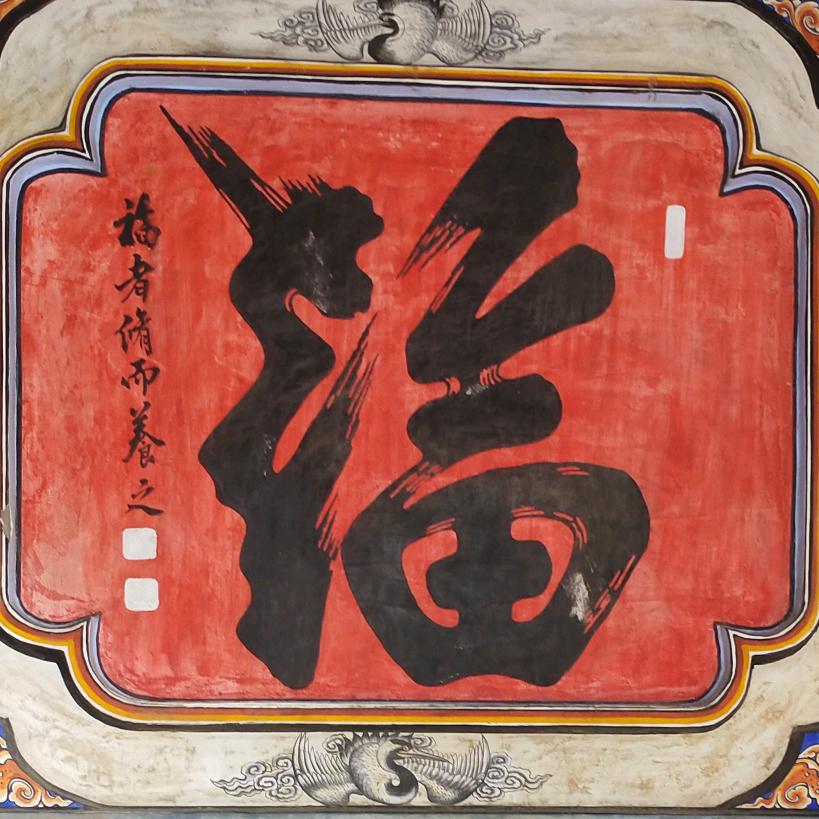 福
福者脩而養之